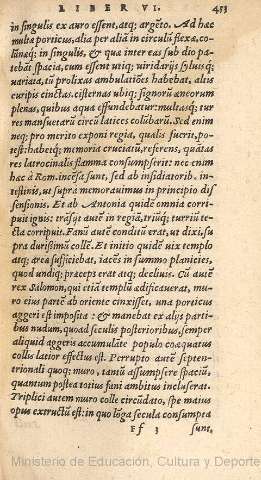 LIBER VI. 453
in singulis ex auro essent, atq; argẽto. Ad hac
multæ porticus, alia per aliã in circulũ flexæ, co-
lũnæq; in singulis, & quæ inter eas sub dio pa-
tebãt spacia, cum essent utiq; uiridarijs syluisq;
uariata, tũ prolixas ambulatiões habebat, altis
euripis cinctas, cisternas ubiq; signorũ æneorum
plenas, quibus aqua effundebatur: multasq; tur
res mansuetarũ circũ latices colũbarũ. Sed enim
neq; pro merito exponi regia, qualis fuerit, po-
test: habetq; memoria cruciatũ, referens, quãtas
res latrocinalis flamma consumpserit: nec enim
hæc à Rom. incẽsa sunt, sed ab insidiatorib. in-
testinis, ut supra memorauimus in principio dis
sensionis. Et ab Antonia quidẽ omnia corri-
puit ignis: trãsijt autẽ in regiã, triũq; turriũ te-
cta corripuit. Fanũ autẽ conditũ erat, ut dixi, su
pra durissimũ collẽ. Et initio quidẽ uix templo
atq; areæ sufficiebat, iacẽs in summo planicies,
quod undiq; præceps erat atq; decliuis. Cũ autẽ
rex Salomon, qui etiã templũ ædificauerat, mu-
ro eius partẽ ab oriente cinxisset, una porticus
aggeri est imposita: & manebat ex alijs parti-
bus nudum, quoad seculis posterioribus, semper
aliquid aggeris accumulãte populo coæquatus
collis latior effectus est. Perrupto autẽ septen-
trionali quoq; muro, tantũ assumpsere spaciũ,
quantum postea totius fani ambitus incluserat.
Triplici autẽ muro colle circũdato, spe maius
opus extructũ est: in quo lõga secula consumpta
Ff 3 sunt,
Ministerio de Educación, Cultura y Deporte